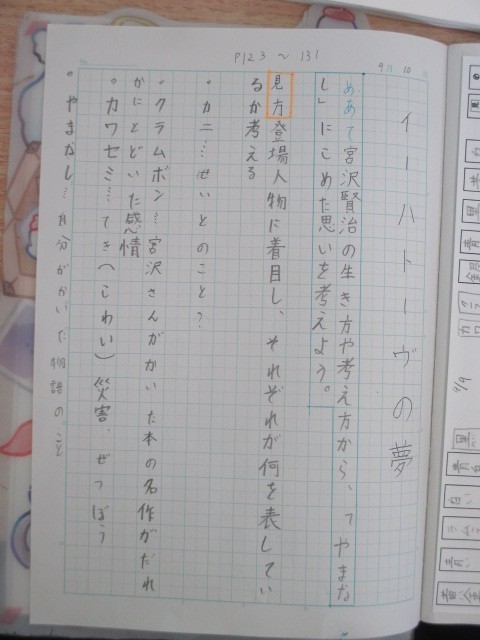 P123〜131
9/10
イーハトーヴの夢
めあて宮沢賢治の生き方や考え方から、「やまな
し」にこめた思いを考えよう。
見方登場人物に着目し、それぞれが何を表してい
るか考える
・カニ…せいとのこと?
・クラムボン…宮沢さんがかいた本の名作がだれ
かにとどいた感情
・カワセミ…てき(こわい)災害、ぜつぼう
・やまなし…自分がかいた物語のこと